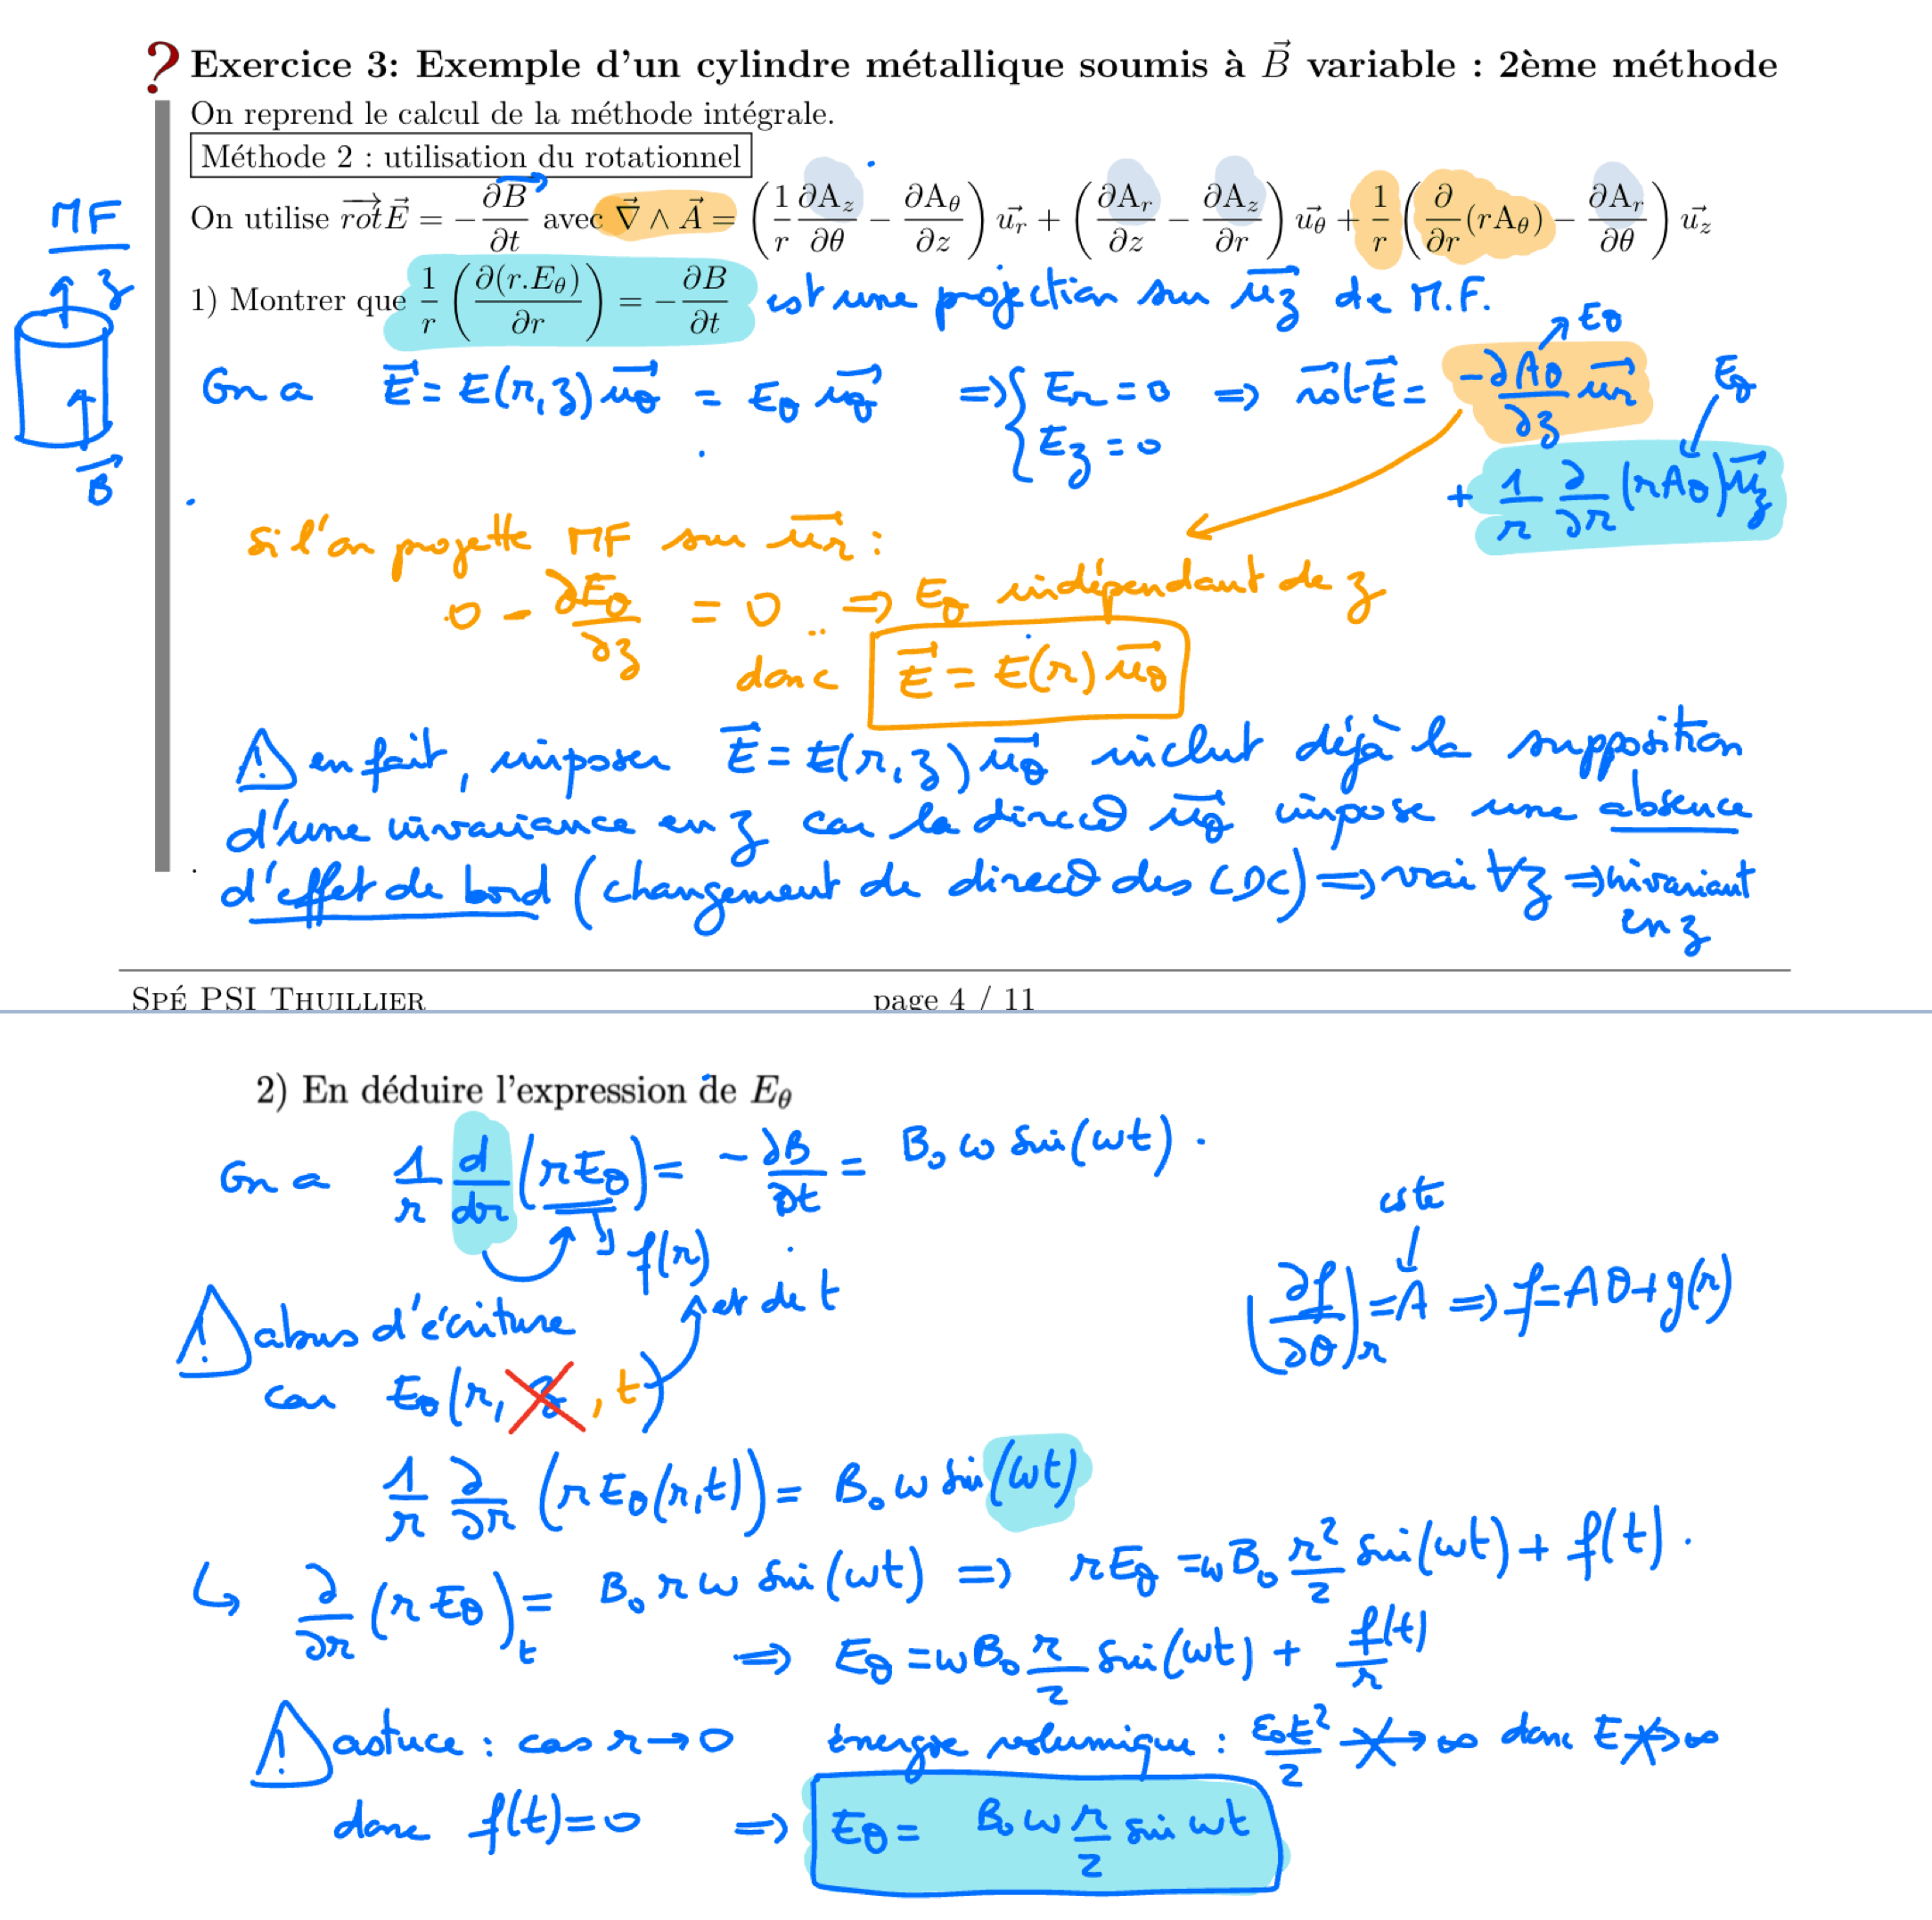 ? Exercice 3: Exemple d'un cylindre métallique soumis à $\vec{B}$ variable : 2ème méthode
On reprend le calcul de la méthode intégrale.
Méthode 2 : utilisation du rotationnel
MF
On utilise $\overrightarrow{rot}\vec{E} = -\frac{\partial \vec{B}}{\partial t}$ avec $\vec{\nabla} \wedge \vec{A} = \left(\frac{1}{r}\frac{\partial A_z}{\partial \theta} - \frac{\partial A_\theta}{\partial z}\right)\vec{u_r} + \left(\frac{\partial A_r}{\partial z} - \frac{\partial A_z}{\partial r}\right)\vec{u_\theta} + \frac{1}{r}\left(\frac{\partial}{\partial r}(rA_\theta) - \frac{\partial A_r}{\partial \theta}\right)\vec{u_z}$
z
1) Montrer que $\frac{1}{r}\left(\frac{\partial (r.E_\theta)}{\partial r}\right) = -\frac{\partial B}{\partial t}$ est une projection sur $\vec{u_z}$ de M.F.
$E_\theta$
On a $\vec{E} = E(r,z)\vec{u_\theta} = E_\theta \vec{u_\theta}$ ⇒ { $E_r = 0$ ⇒ $\overrightarrow{rot}\vec{E} = -\frac{\partial A_\theta}{\partial z}\vec{u_r}$ $E_\theta$
$E_z = 0$
$\vec{B}$
$+ \frac{1}{r}\frac{\partial}{\partial r}(rA_\theta)\vec{u_z}$
si l'on projette MF sur $\vec{u_r}$ :
$0 - \frac{\partial E_\theta}{\partial z} = 0$ ⇒ $E_\theta$ indépendant de z
donc $\vec{E} = E(r)\vec{u_\theta}$
⚠ en fait, imposer $\vec{E} = E(r,z)\vec{u_\theta}$ inclut déjà la supposition
d'une invariance en z car la direc° $\vec{u_\theta}$ impose une absence
d'effet de bord (changement de direc° des LDC) ⇒ vrai ∀z ⇒ invariant
en z
Spé PSI Thuillier page 4 / 11
2) En déduire l'expression de $E_\theta$
On a $\frac{1}{r}\frac{d}{dr}(rE_\theta) = -\frac{\partial B}{\partial t} = B_0 \omega \sin(\omega t)$.
f(r)
cste
et de t
⚠ abus d'écriture
$\left(\frac{\partial f}{\partial \theta}\right)_r = A$ ⇒ $f = A\theta + g(r)$
car $E_\theta(r, z, t)$
$\frac{1}{r}\frac{\partial}{\partial r}(rE_\theta(r,t)) = B_0 \omega \sin(\omega t)$
↳ $\frac{\partial}{\partial r}(rE_\theta)_t = B_0 r \omega \sin(\omega t)$ ⇒ $rE_\theta = \omega B_0 \frac{r^2}{2}\sin(\omega t) + f(t)$.
⇒ $E_\theta = \omega B_0 \frac{r}{2}\sin(\omega t) + \frac{f(t)}{r}$
⚠ astuce : cas r → 0 énergie volumique : $\frac{\varepsilon_0 E^2}{2} \not\to \infty$ donc $E \not\to \infty$
donc $f(t) = 0$ ⇒ $E_\theta = B_0 \omega \frac{r}{2} \sin \omega t$